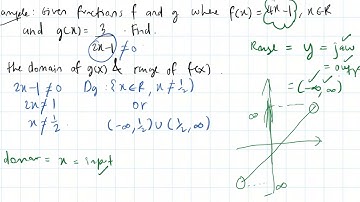 ample: Given functions f and g where f(x) = 4x-1, x∈R
and g(x) = 3/(2x-1). Find
2x-1≠0
the domain of g(x) & range of f(x).
2x-1≠0 Dg: {x∈R, x≠1/2}
2x≠1 or
x≠1/2 (-∞, 1/2) ∪ (1/2, ∞)
domain = x = input
Range = y =
= (-∞, ∞)
∞
∞